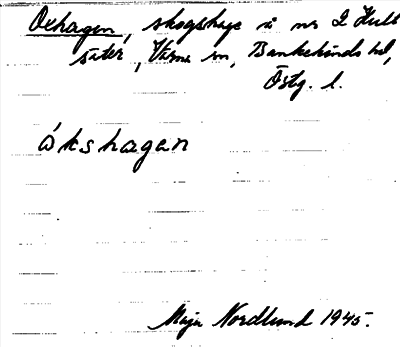 Oxhagen, skogshage å nr 2 Hult
säter, Värna sn, Bankekinds hd,
Östg. l.
ákshagan
Maja Nordlund 1945.